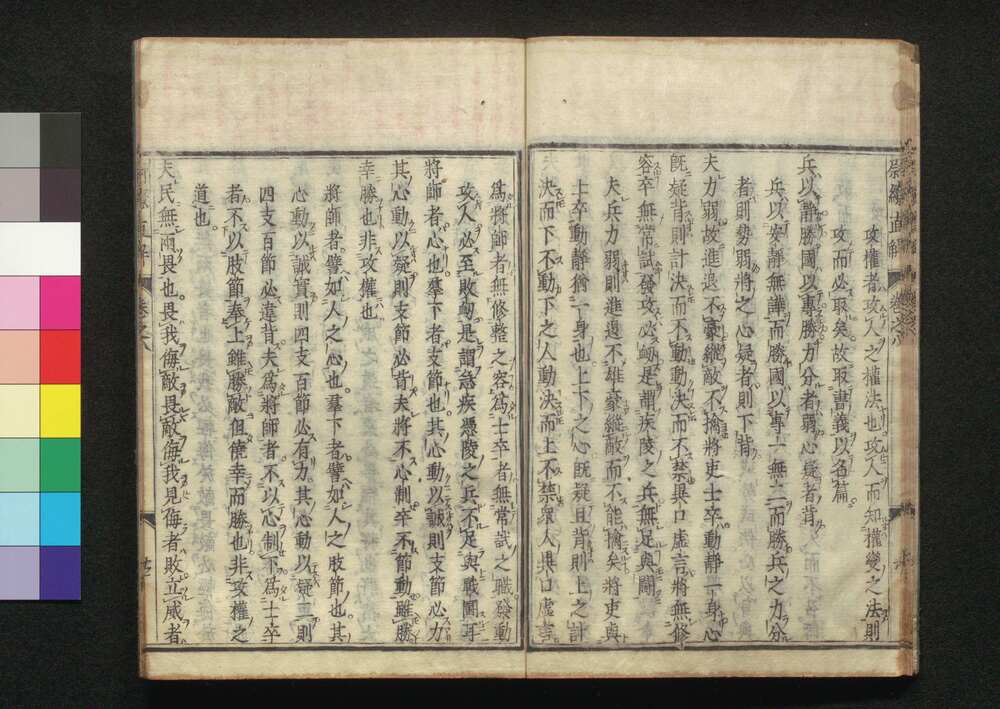 尉繚直解　卷之八
攻權者攻人之權法也攻人而知權變之法則
攻而必取矣故取書義以名篇
兵以靜勝國以專勝力分者弱心疑者背
兵以安靜無譁而勝國以專一無二而勝兵之力分
者則勢弱將之心疑者則下背
夫力弱故進退不豪縱敵不擒將吏士卒動靜一身心
既疑背則計決而不動動決而不禁異口虛言將無修
容卒無常試發攻必衂是謂疾陵之兵無足與鬭
夫兵力弱則進退不雄豪縱敵而不能擒矣將吏與
士卒動靜猶一身也上下之心既疑且背則上之計
決而下不動下之人動決而上不禁眾人異口虛言
爲將師者無修整之容爲士卒者無常試之職發動
攻人必至敗衂是謂急疾憑陵之兵不足與戰鬭耳
將師者心也羣下者支節也其心動以誠則支節必力
其心動以疑則支節必背夫將不心制卒不節動雖勝
幸勝也非攻權也
將師者譬如人之心也羣下者譬如人之肢節也其
心動以誠實則四支百節必有力其心動以疑二則
四支百節必違背夫爲將師者不以心制下爲士卒
者不以肢節奉上雖勝敵但僥幸而勝也非攻權之
道也
夫民無兩畏也畏我侮敵畏敵侮我見侮者敗立威者
直解　卷之八